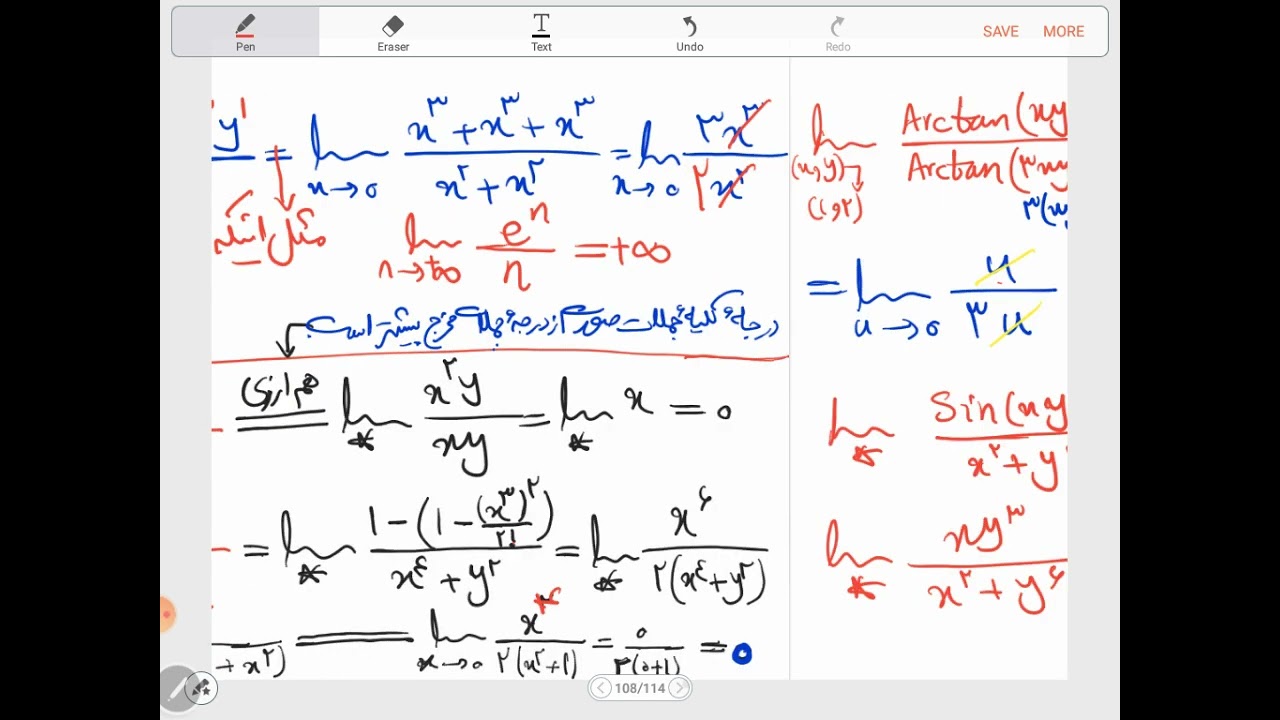 Pen Eraser Text Undo Redo SAVE MORE
y' = lim x→0 (x^۳ + x^۳ + x^۳)/(x^۲ + x^۲) = lim x→0 ۳x^۳/۲x^۲
مثل اینکه lim n→+∞ e^n/n = +∞
درجه کلیه جملات صورت از درجه جملات مخرج بیشتر است
هم ارزی lim* x^۲y/xy = lim* x = 0
= lim* (1-(1-(x^۳)^۲/۲!))/(x^۴+y^۲) = lim* x^۶/۲(x^۴+y^۲)
+ x^۲) = lim x→0 x^۴/۲(x^۲+1) = 0/۲(0+1) = 0
lim (x,y)→(1,۲) Arctan(xy / Arctan(۳xy
۳(x
= lim u→0 u/۳u
lim* Sin(xy / x^۲+y
lim* xy^۳/x^۲+y^۶
108/114